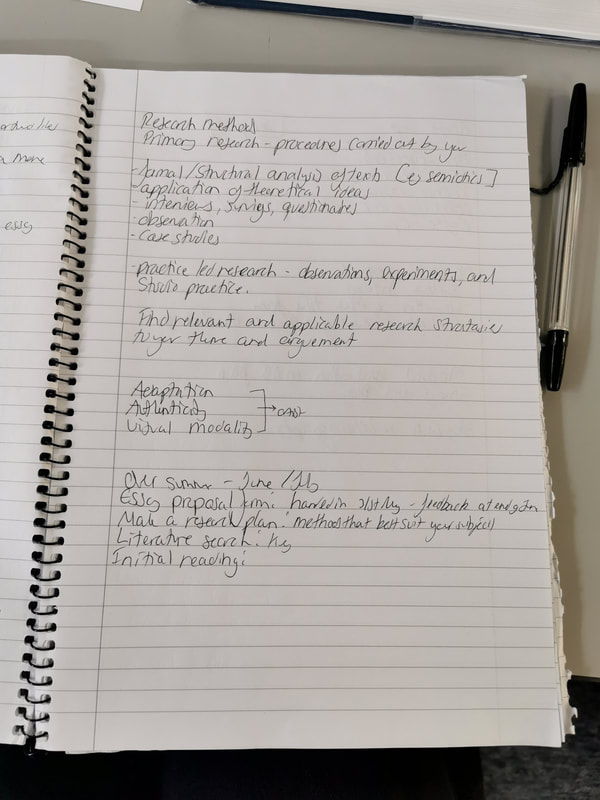 Research methods
Primary research - procedures carried out by you
- formal/Structural analysis of texts [eg semiotics]
- application of theoretical ideas
- interviews, survigs, questionaires
- observation
- case studies
- practice led research - observations, experiments, and
Studio practice.
Find relevant and applicable research stratasie
to your theme and arguement
Adaptation
Authenticity
Virtual modality
Over summer - June / July
Essay proposal form: handed in 21st May - feedback at end of Jun
Make a research plan: methods that best suit your subject
Literature search: Key
Initial reading:
a more
essay